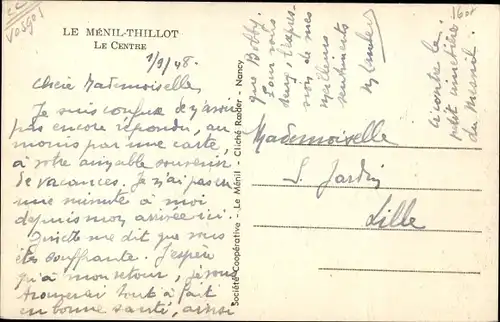 Vosges
LE MÉNIL-THILLOT
LE CENTRE
1/9/48.
Chère Mademoiselle,
Je suis confuse de n'avoir
pas encore répondu, au
moins par une carte,
à votre aimable souvenir
de vacances. Je n'ai pas eu
une minute à moi
depuis mon arrivée ici.
me dit que vous
êtes souffrante. J'espère
qu'à mon retour, je vous
trouverai tout à fait
en bonne santé, ainsi
que Bobby.
Pour vous
l'expres-
sion de mes
meilleurs
sentiments
Ci contre le
petit cimetière
du Mesnil
Société Coopérative - Le Ménil - Cliché Rœder - Nancy
Mademoiselle
S. Jardin
Lille